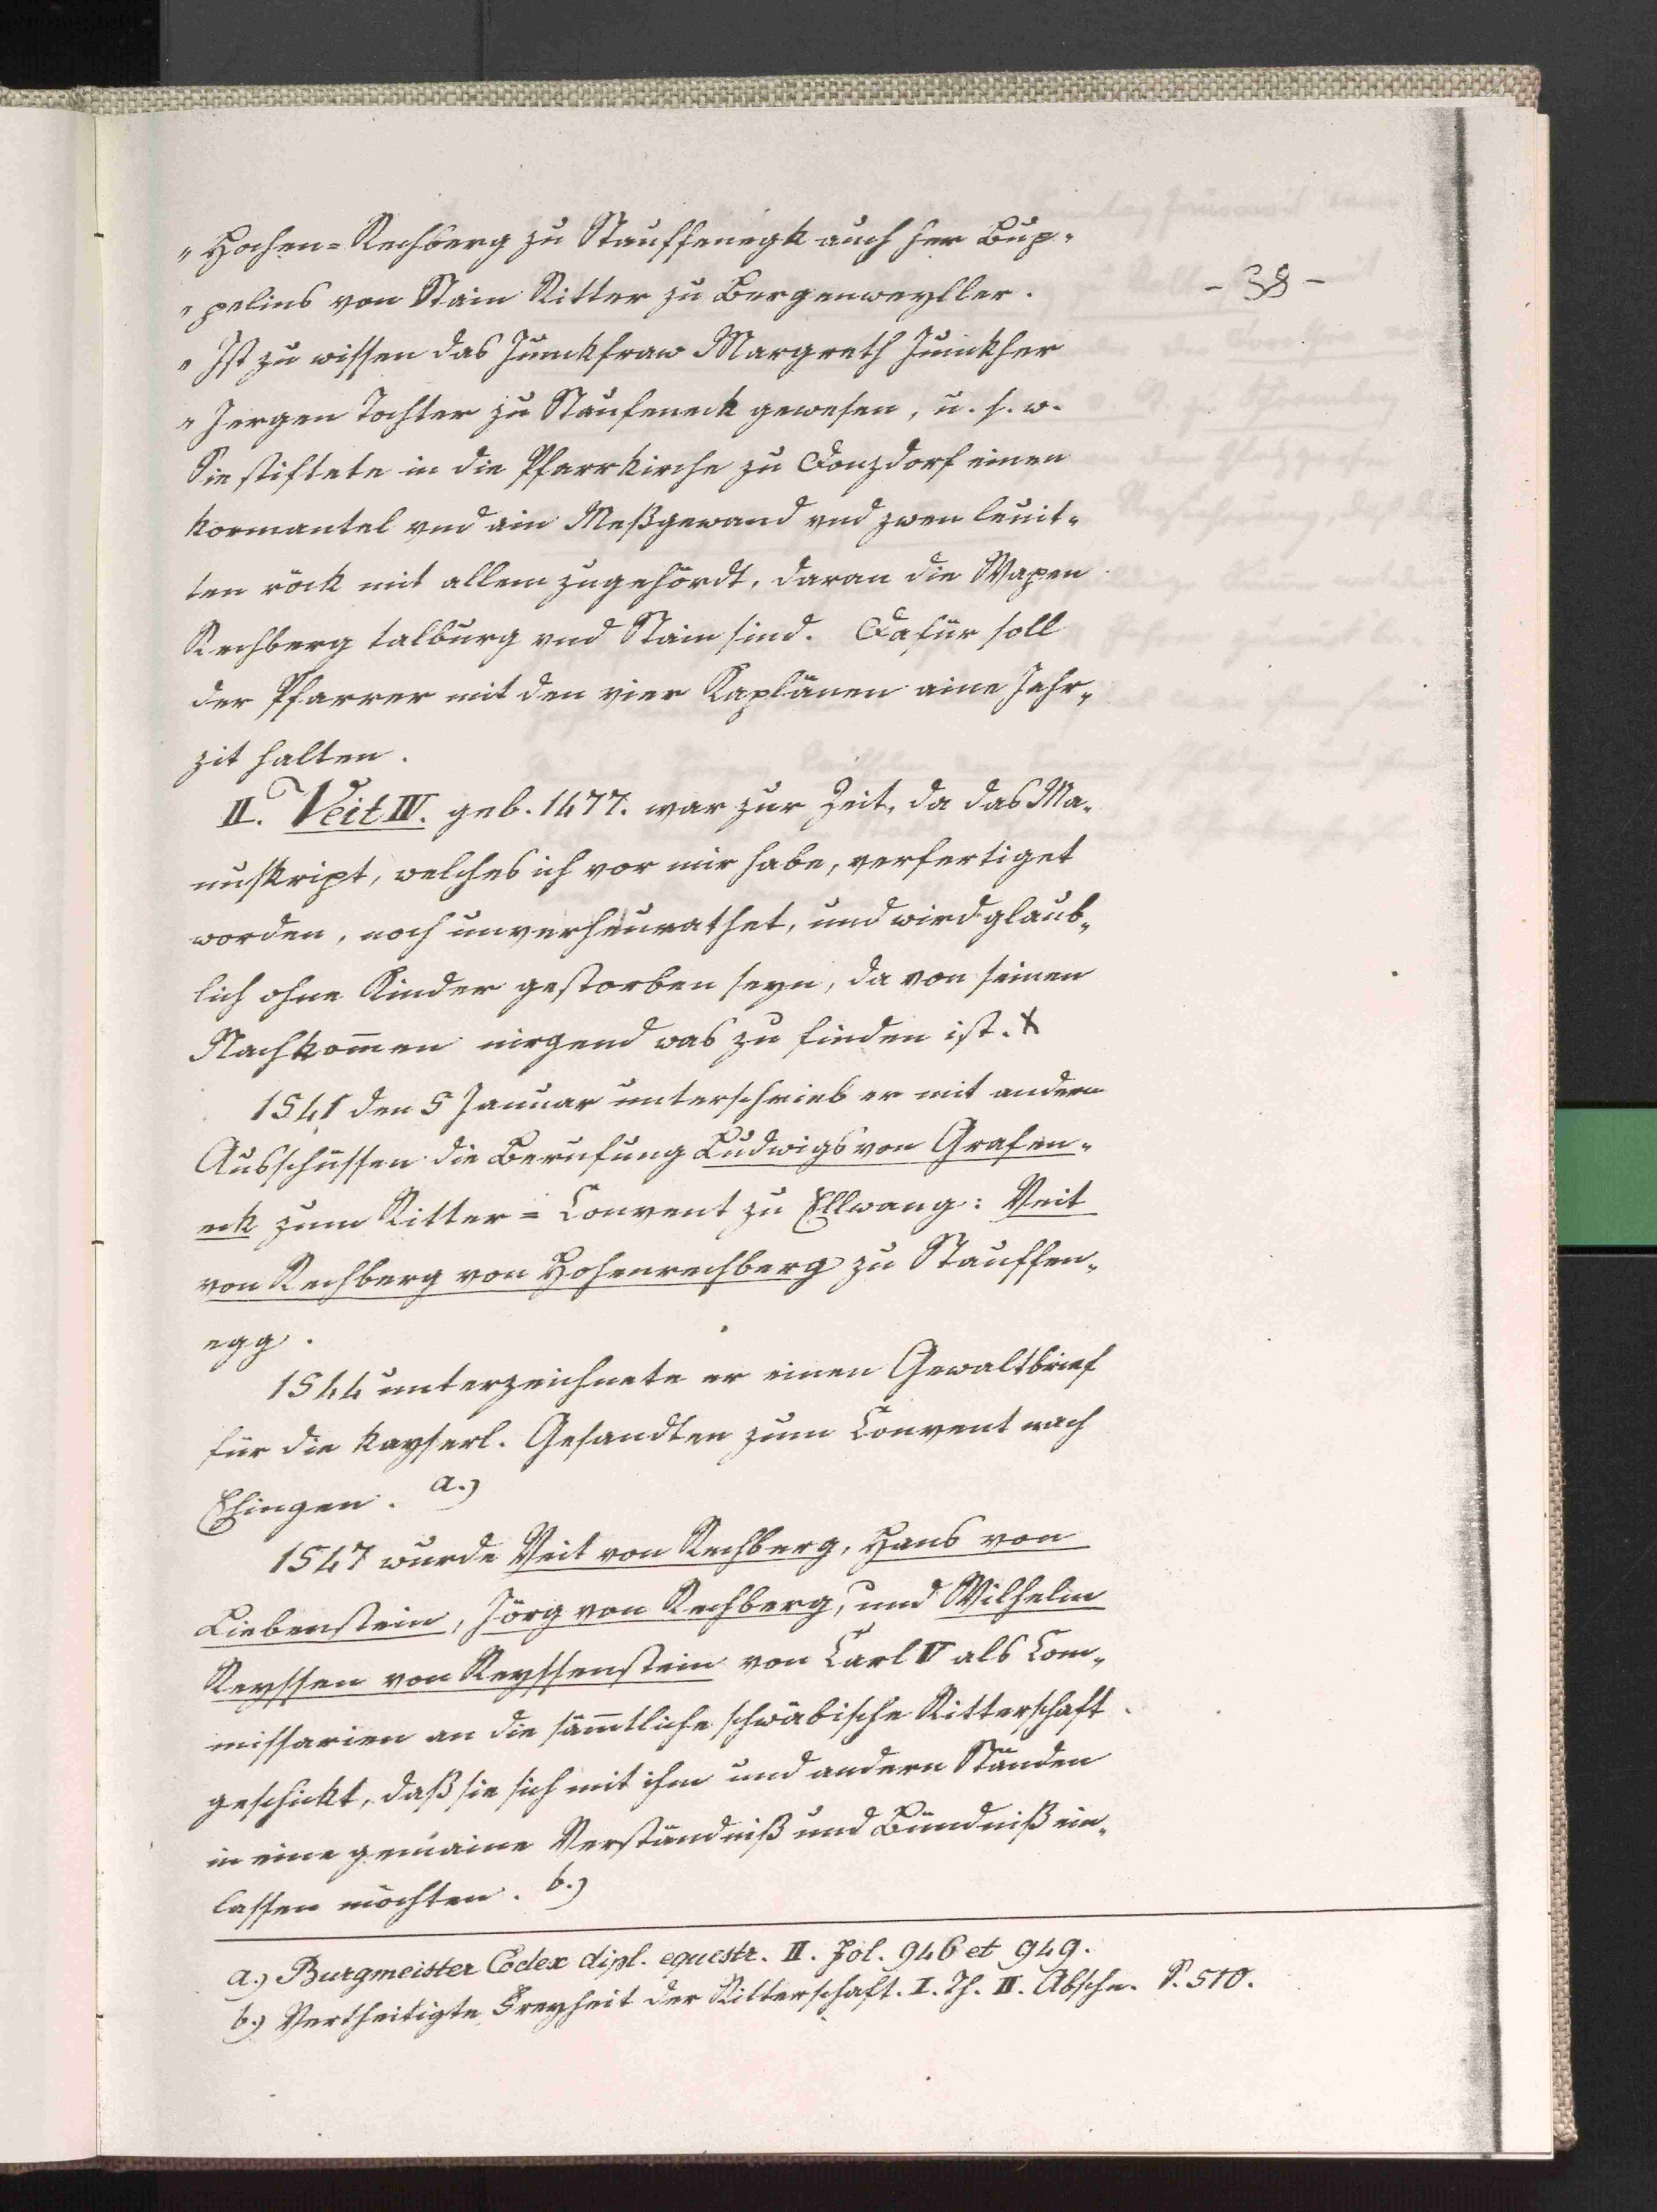 "Hochen=Rechberg zu Stauffenegk auch her Bup-
"pelins von Stain Ritter zu Bergenweyller.
- 38 -
"Ist zu wissen das Junckfraw Margreth Junckher
"Jergen Tochter zu Staufeneck gewesen, u. s. w.
Sie stiftete in die Pfarrkirche zu Donzdorf einen
kormantel vnd ain Meßgewand vnd zwen leuit-
ten röck mit allem zugehördt, daran die Wapen
Rechberg talburg vnd Stain sind. Dafür soll
der Pfarrer mit den vier Kaplänen aine Jahr-
zit halten.
II. Veit IV. geb. 1477. war zur Zeit, da das Ma-
nuskript, welches ich vor mir habe, verfertiget
worden, noch unverheurathet, und wird glaub-
lich ohne Kinder gestorben seyn, da von seinen
Nachkom̄en nirgend was zu finden ist. x
1541 den 5 Januar unterschrieb er mit andern
Ausschüssen die Berufung Ludwigs von Grafen-
eck zum Ritter=Convent zu Ellwang: Veit
von Rechberg von Hohenrechberg zu Stauffen-
egg.
1544 unterzeichnete er einen Gewaltbrief
für die kayserl. Gesandten zum Convent nach
Ehingen. a.)
1547 wurde Veit von Rechberg, Hans von
Liebenstein, Jörg von Rechberg, und Wilhelm
Reyssen von Reyssenstein von Carl V als Com-
missarien an die säm̄tliche schwäbische Ritterschaft
geschickt, daß sie sich mit ihm und andern Ständen
in eine gemaine Verständniß und Bündniß ein-
lassen möchten. b.)
a.) Burgmeister Codex dipl. equestr. II. Fol. 946 et 949.
b.) Vertheitigte Freyheit der Ritterschaft. I. Th. II. Abschn. S. 510.